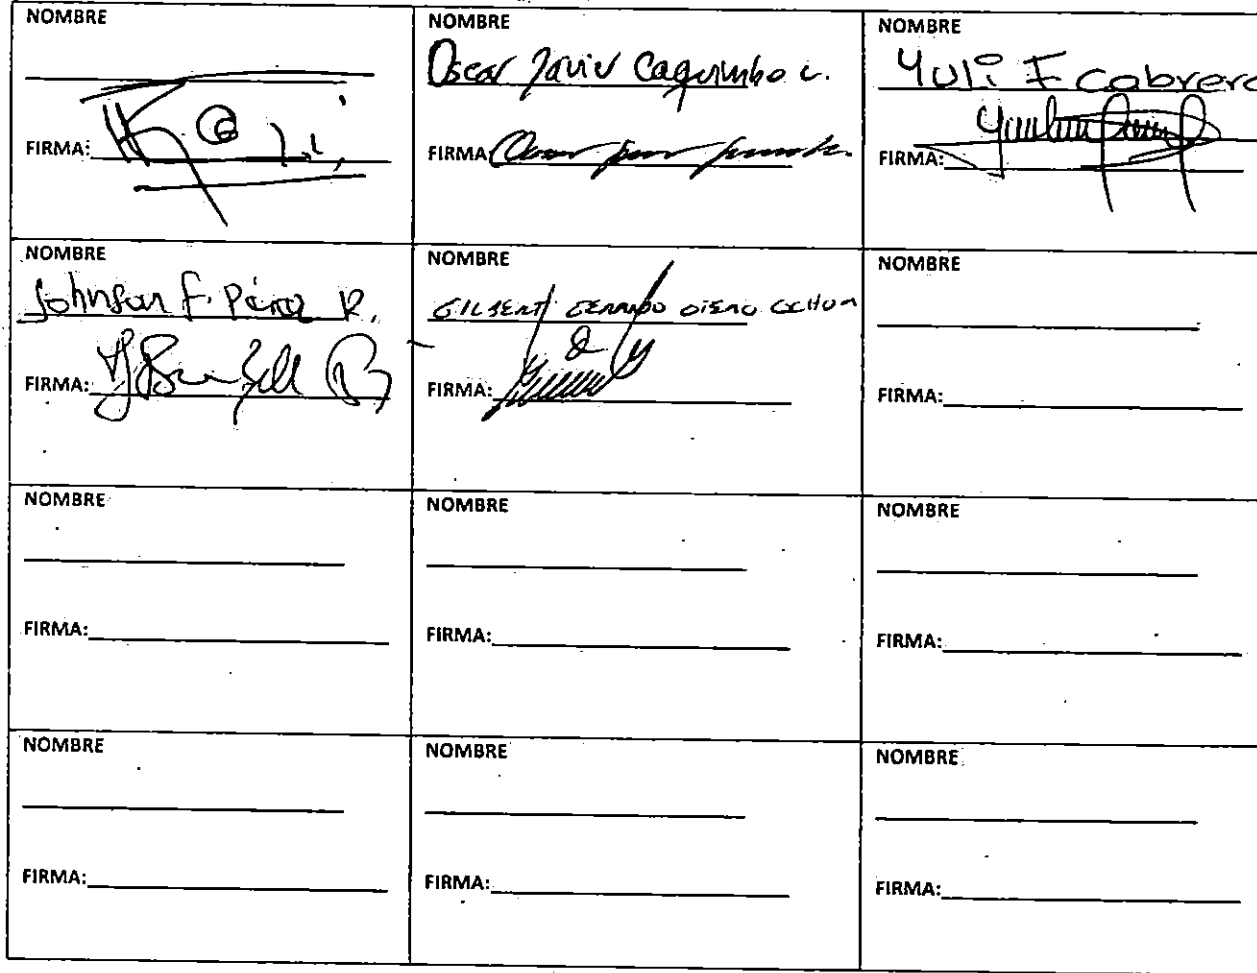 NOMBRE
FIRMA:
NOMBRE
Oscar Javier Caquimbo c.
FIRMA
NOMBRE
Yuli F cabrera
FIRMA:
NOMBRE
Johnson F. Pérez R.
FIRMA:
NOMBRE
GILBERT GERARDO OTERO
FIRMA:
NOMBRE
FIRMA:
NOMBRE
FIRMA:
NOMBRE
FIRMA:
NOMBRE
FIRMA:
NOMBRE
FIRMA:
NOMBRE
FIRMA:
NOMBRE
FIRMA: